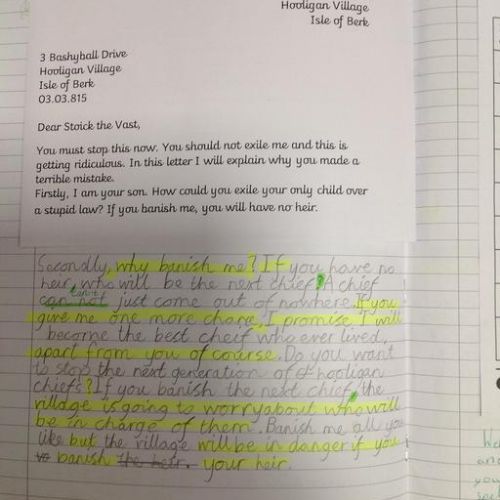 Hooligan Village
Isle of Berk
3 Bashyball Drive
Hooligan Village
Isle of Berk
03.03.815
Dear Stoick the Vast,
You must stop this now. You should not exile me and this is
getting ridiculous. In this letter I will explain why you made a
terrible mistake.
Firstly, I am your son. How could you exile your only child over
a stupid law? If you banish me, you will have no heir.
Secondly, why banish me? If you have no
heir, who will be the next chief? A chief
can't
can not just come out of nowhere. If you
give me one more chance, I promise I will
become the best cheif who ever lived,
apart from you of course. Do you want
to stop the next generation of hooligan
chiefs? If you banish the next chief, the
village is going to worry about who will
be in charge of them. Banish me all you
like but the village will be in danger if you
banish the heir. your heir.